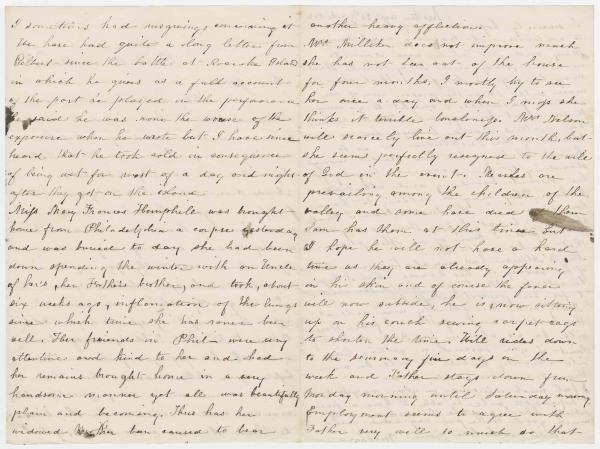 I sometimes had misgivings concerning it
We have had quite a long letter from
Gilbert since the battle at Roanoke Island
in which he gives us a full account
of the part he played in the performance
he said he was none the worse of the
exposure when he wrote but I have since
heard that he took cold in consequence
of being wet for most of a day and night
after they got on the island
Miss Mary Frances Hemphill was brought
home from Philadelphia a corpse yesterday
and was buried to day she had been
down spending the winter with an Uncle
of her's, her Father's brother, and took, about
six weeks ago, inflamation of the lungs
since which time she was never been
well. Her friends in Phil were very
attentive and kind to her and had
her remains brought home in a very
handsome manner yet all was beautifully
plain and becoming. Thus has her
widowed Mother been caused to bear
another heavy affliction.
Mrs Milliken does not improve much
she has not been out of the house
for four months. I mostly try to see
her once a day and when I miss she
thinks it terrible lonelyness. Mrs Nelson
will scarcely live out this month, but
she seems perfectly resigned to the will
of God in the event. Measles are
prevailing among the children of the
valley and some have died them
Sam has them at this time but
I hope he will not have a hard
time as they are already appearing
on his skin and of course the fever
will now subside, he is, now sitting
up on his couch sewing carpet rags
to shorten the time. Will rides down
to the seminary five days in the
week and Father stays down from
Monday morning until Saturday evening
Employment seems to agree with
Father very well so much so that